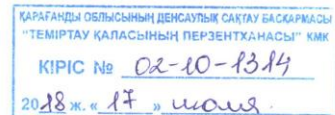 ҚАРАҒАНДЫ ОБЛЫСЫНЫҢ ДЕНСАУЛЫҚ САҚТАУ БАСҚАРМАСЫ
"ТЕМІРТАУ ҚАЛАСЫНЫҢ ПЕРЗЕНТХАНАСЫ" КМК
КІРІС № 02-10-1314
2018 ж. « 17 » июля.